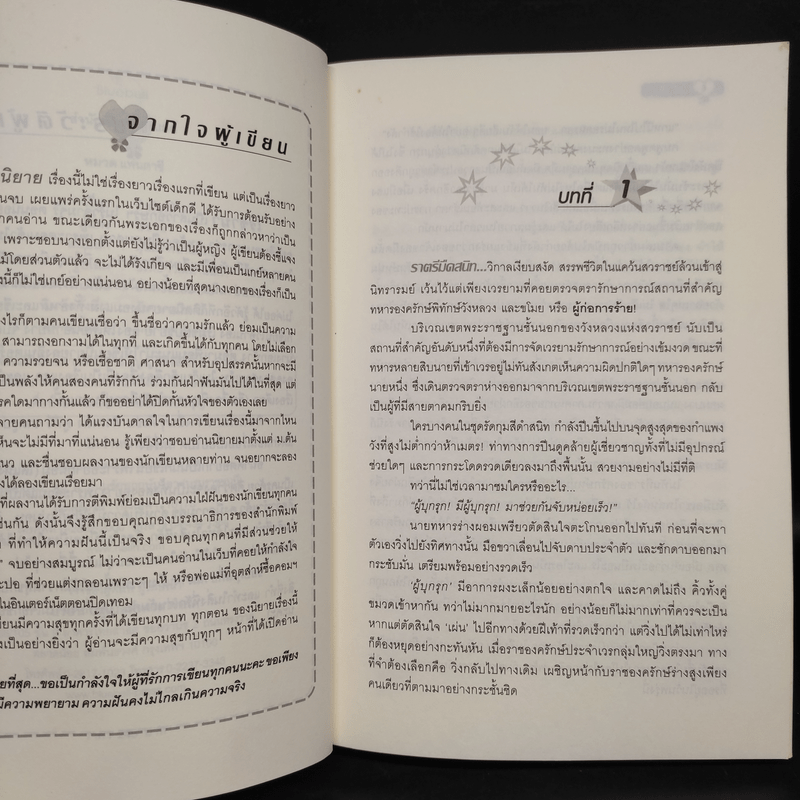 จากใจผู้เขียน
นิยาย เรื่องนี้ไม่ใช่เรื่องยาวเรื่องแรกที่เขียน แต่เป็นเรื่องยาว
นจบ เผยแพร่ครั้งแรกในเว็บไซต์เด็กดี ได้รับการต้อนรับอย่าง
าคนอ่าน ขณะเดียวกันพระเอกของเรื่องก็ถูกกล่าวหาว่าเป็น
เพราะชอบนางเอกตั้งแต่ยังไม่รู้ว่าเป็นผู้หญิง ผู้เขียนต้องชี้แจง
ม้โดยส่วนตัวแล้ว จะไม่ได้รังเกียจ และมีเพื่อนเป็นเกย์หลายคน
งนี้ก็ไม่ใช่เกย์อย่างแน่นอน อย่างน้อยที่สุดนางเอกของเรื่องก็เป็น
งไรก็ตามคนเขียนเชื่อว่า ขึ้นชื่อว่าความรักแล้ว ย่อมเป็นความ
สามารถงอกงามได้ในทุกที่ และเกิดขึ้นได้กับทุกคน โดยไม่เลือก
ความรวยจน หรือเชื้อชาติ ศาสนา สำหรับอุปสรรคนั้นหากจะมี
เป็นพลังให้คนสองคนที่รักกัน ร่วมกันฝ่าฟันมันไปได้ในที่สุด แต่
รคใดมากางกั้นแล้ว ก็ขออย่าได้ปิดกั้นหัวใจของตัวเองเลย
ายคนถามว่า ได้แรงบันดาลใจในการเขียนเรื่องนี้มาจากไหน
ห็นจะไม่มีที่มาที่แน่นอน รู้เพียงว่าชอบอ่านนิยายมาตั้งแต่ ม.ต้น
นว และชื่นชอบผลงานของนักเขียนหลายท่าน จนอยากจะลอง
งได้ลองเขียนเรื่อยมา
ที่ผลงานได้รับการตีพิมพ์ย่อมเป็นความใฝ่ฝันของนักเขียนทุกคน
ช่นกัน ดังนั้นจึงรู้สึกขอบคุณกองบรรณาธิการของสำนักพิมพ์
ที่ทำให้ความฝันนี้เป็นจริง ขอบคุณทุกคนที่มีส่วนช่วยให้
จบอย่างสมบูรณ์ ไม่ว่าจะเป็นคนอ่านในเว็บที่คอยให้กำลังใจ
ะปอ ที่ช่วยแต่งกลอนเพราะๆ ให้ หรือพ่อแม่ที่อุตส่าห์ซื้อคอมฯ
ในอินเตอร์เน็ตตอนปิดเทอม
ยนมีความสุขทุกครั้งที่ได้เขียนทุกบท ทุกตอน ของนิยายเรื่องนี้
งเป็นอย่างยิ่งว่า ผู้อ่านจะมีความสุขกับทุกๆ หน้าที่ได้เปิดอ่าน
ยที่สุด...ขอเป็นกำลังใจให้ผู้ที่รักการเขียนทุกคนนะคะ ขอเพียง
มีความพยายาม ความฝันคงไม่ไกลเกินความจริง
บทที่ 1
ราตรีมืดสนิท...วิกาลเงียบสงัด สรรพชีวิตในแคว้นสวราชย์ล้วนเข้าสู่
นิทรารมย์ เว้นไว้แต่เพียงเวรยามที่คอยตรวจตรารักษาการณ์สถานที่สำคัญ
ทหารองครักษ์พิทักษ์วังหลวง และขโมย หรือ ผู้ก่อการร้าย!
บริเวณเขตพระราชฐานชั้นนอกของวังหลวงแห่งสวราชย์ นับเป็น
สถานที่สำคัญอันดับหนึ่งที่ต้องมีการจัดเวรยามรักษาการณ์อย่างเข้มงวด ขณะที่
ทหารหลายสิบนายที่เข้าเวรอยู่ไม่ทันสังเกตเห็นความผิดปกติใดๆ ทหารองครักษ์
นายหนึ่ง ซึ่งเดินตรวจตราห่างออกมาจากบริเวณเขตพระราชฐานชั้นนอก กลับ
เป็นผู้ที่มีสายตาคมกริบยิ่ง
ใครบางคนในชุดรัดกุมสีดำสนิท กำลังปีนขึ้นไปบนจุดสูงสุดของกำแพง
วังที่สูงไม่ต่ำกว่าห้าเมตร! ท่าทางการปีนดูคล้ายผู้เชี่ยวชาญทั้งที่ไม่มีอุปกรณ์
ช่วยใดๆ และการกระโดดรวดเดียวลงมาถึงพื้นนั้น สวยงามอย่างไม่มีที่ติ
ทว่านี่ไม่ใช่เวลามาชมใครหรืออะไร...
“ผู้บุกรุก! มีผู้บุกรุก! มาช่วยกันจับหน่อยเร็ว!”
นายทหารร่างผอมเพรียวตัดสินใจตะโกนออกไปทันที ก่อนที่จะพา
ตัวเองวิ่งไปยังทิศทางนั้น มือขวาเลื่อนไปจับดาบประจำตัว และชักดาบออกมา
กระชับมั่น เตรียมพร้อมอย่างรวดเร็ว
‘ผู้บุกรุก’ มีอาการผงะเล็กน้อยอย่างตกใจ และคาดไม่ถึง คิ้วทั้งคู่
ขมวดเข้าหากัน ทว่าไม่มากมายอะไรนัก อย่างน้อยก็ไม่มากเท่าที่ควรจะเป็น
หากแต่ตัดสินใจ ‘เผ่น’ ไปอีกทางด้วยฝีเท้าที่รวดเร็วกว่า แต่วิ่งไปได้ไม่เท่าไหร่
ก็ต้องหยุดอย่างกะทันหัน เมื่อราชองครักษ์ประจำเวรกลุ่มใหญ่วิ่งตรงมา ทาง
ที่จำต้องเลือกคือ วิ่งกลับไปทางเดิม เผชิญหน้ากับราชองครักษ์ร่างสูงเพียง
คนเดียวที่ตามมาอย่างกระชั้นชิด